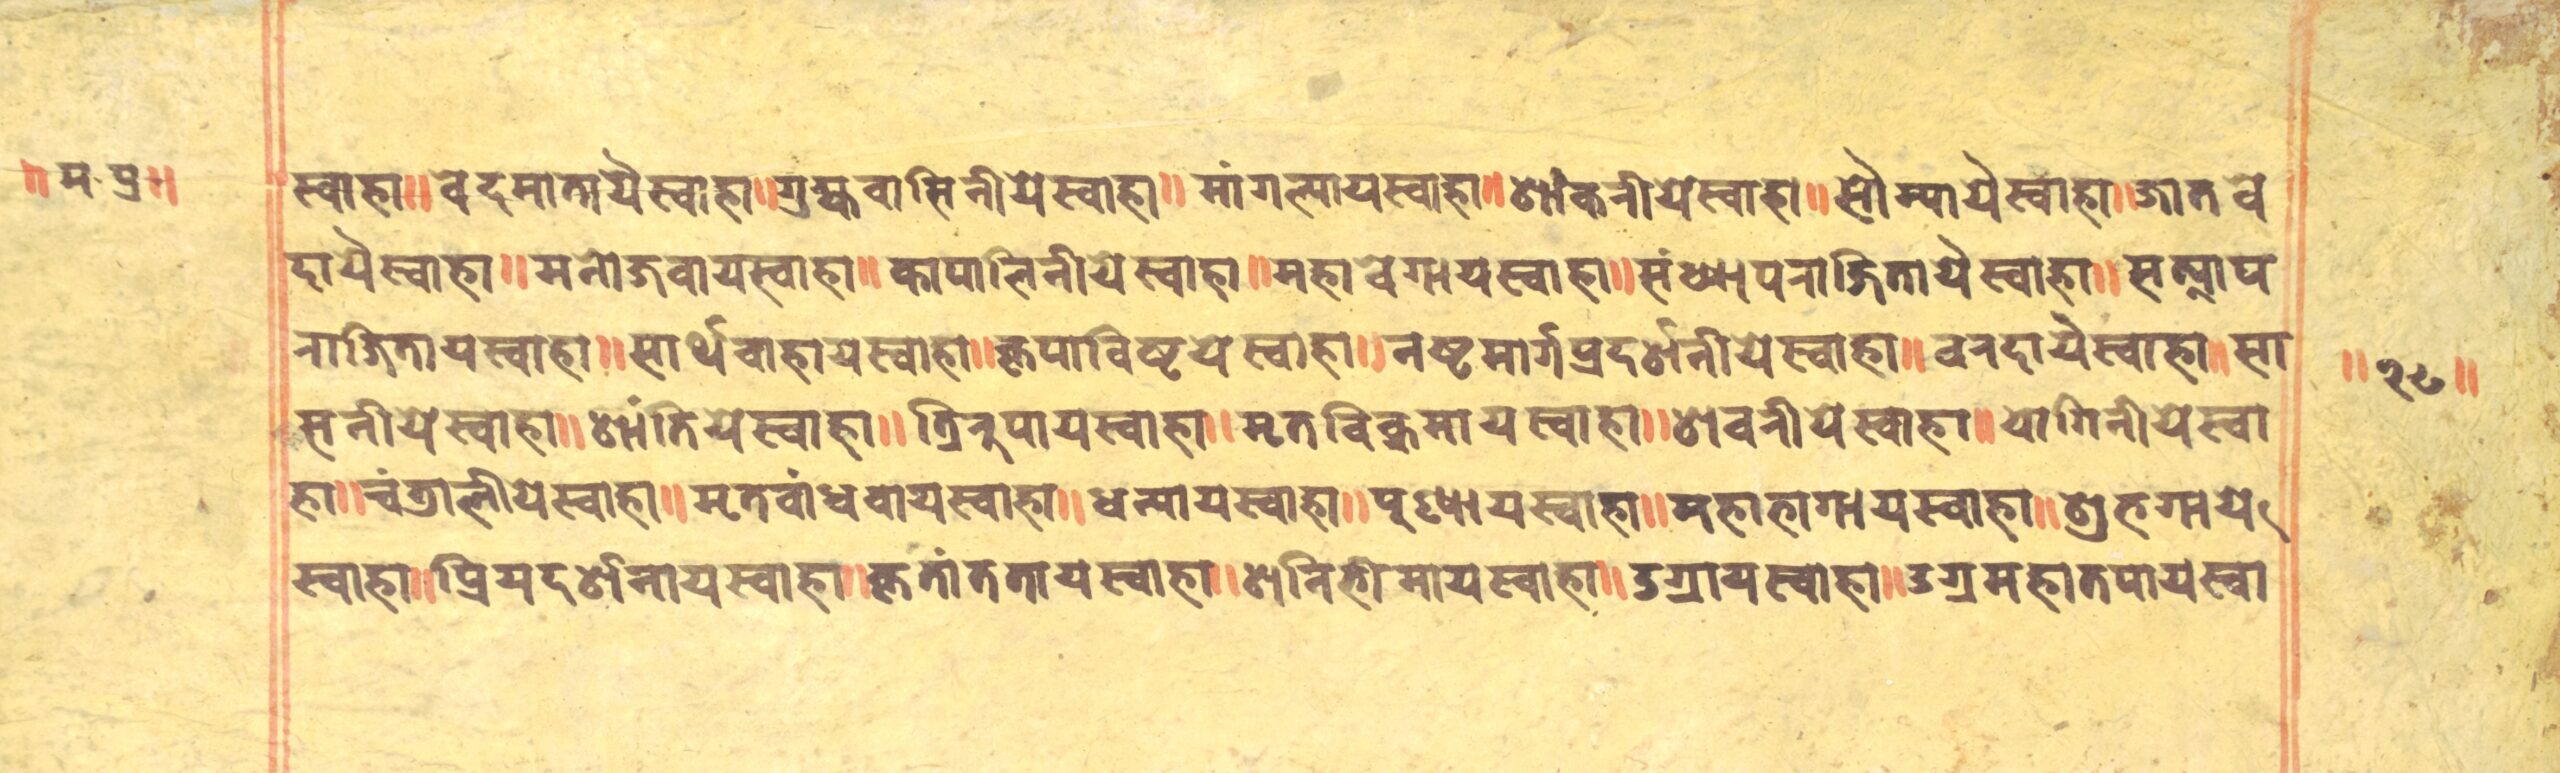 ॥म·प्र॥
स्वाहा॥वेदमातायैस्वाहा॥गुह्यवासिनीयेस्वाहा॥मांगल्यायस्वाहा॥शांकनीयेस्वाहा॥सौम्यायैस्वाहा॥जातवे
दायैस्वाहा॥मनोजवायस्वाहा॥कापालिनीयेस्वाहा॥महावेगायस्वाहा॥संध्यापराजितायैस्वाहा॥सत्याप
राजितायस्वाहा॥सार्थवाहायस्वाहा॥कृपाविष्टयेस्वाहा॥नष्टमार्गप्रदर्शनीयेस्वाहा॥वरदायैस्वाहा॥सा
॥२८॥
सनीयेस्वाहा॥शांतियेस्वाहा॥त्रिरुपायस्वाहा॥मृतविक्रमायस्वाहा॥शेवनीयेस्वाहा॥योगिनीयेस्वा
हा॥चंत्रालीयेस्वाहा॥मृतवांधवायस्वाहा॥धन्यायस्वाहा॥पुण्यायस्वाहा॥महाहागायस्वाहा॥शुभगाये
स्वाहा॥प्रियदर्शनायस्वाहा॥कृतांततायस्वाहा॥शनिभीमायस्वाहा॥उग्रायस्वाहा॥उग्रमहातपायस्वा